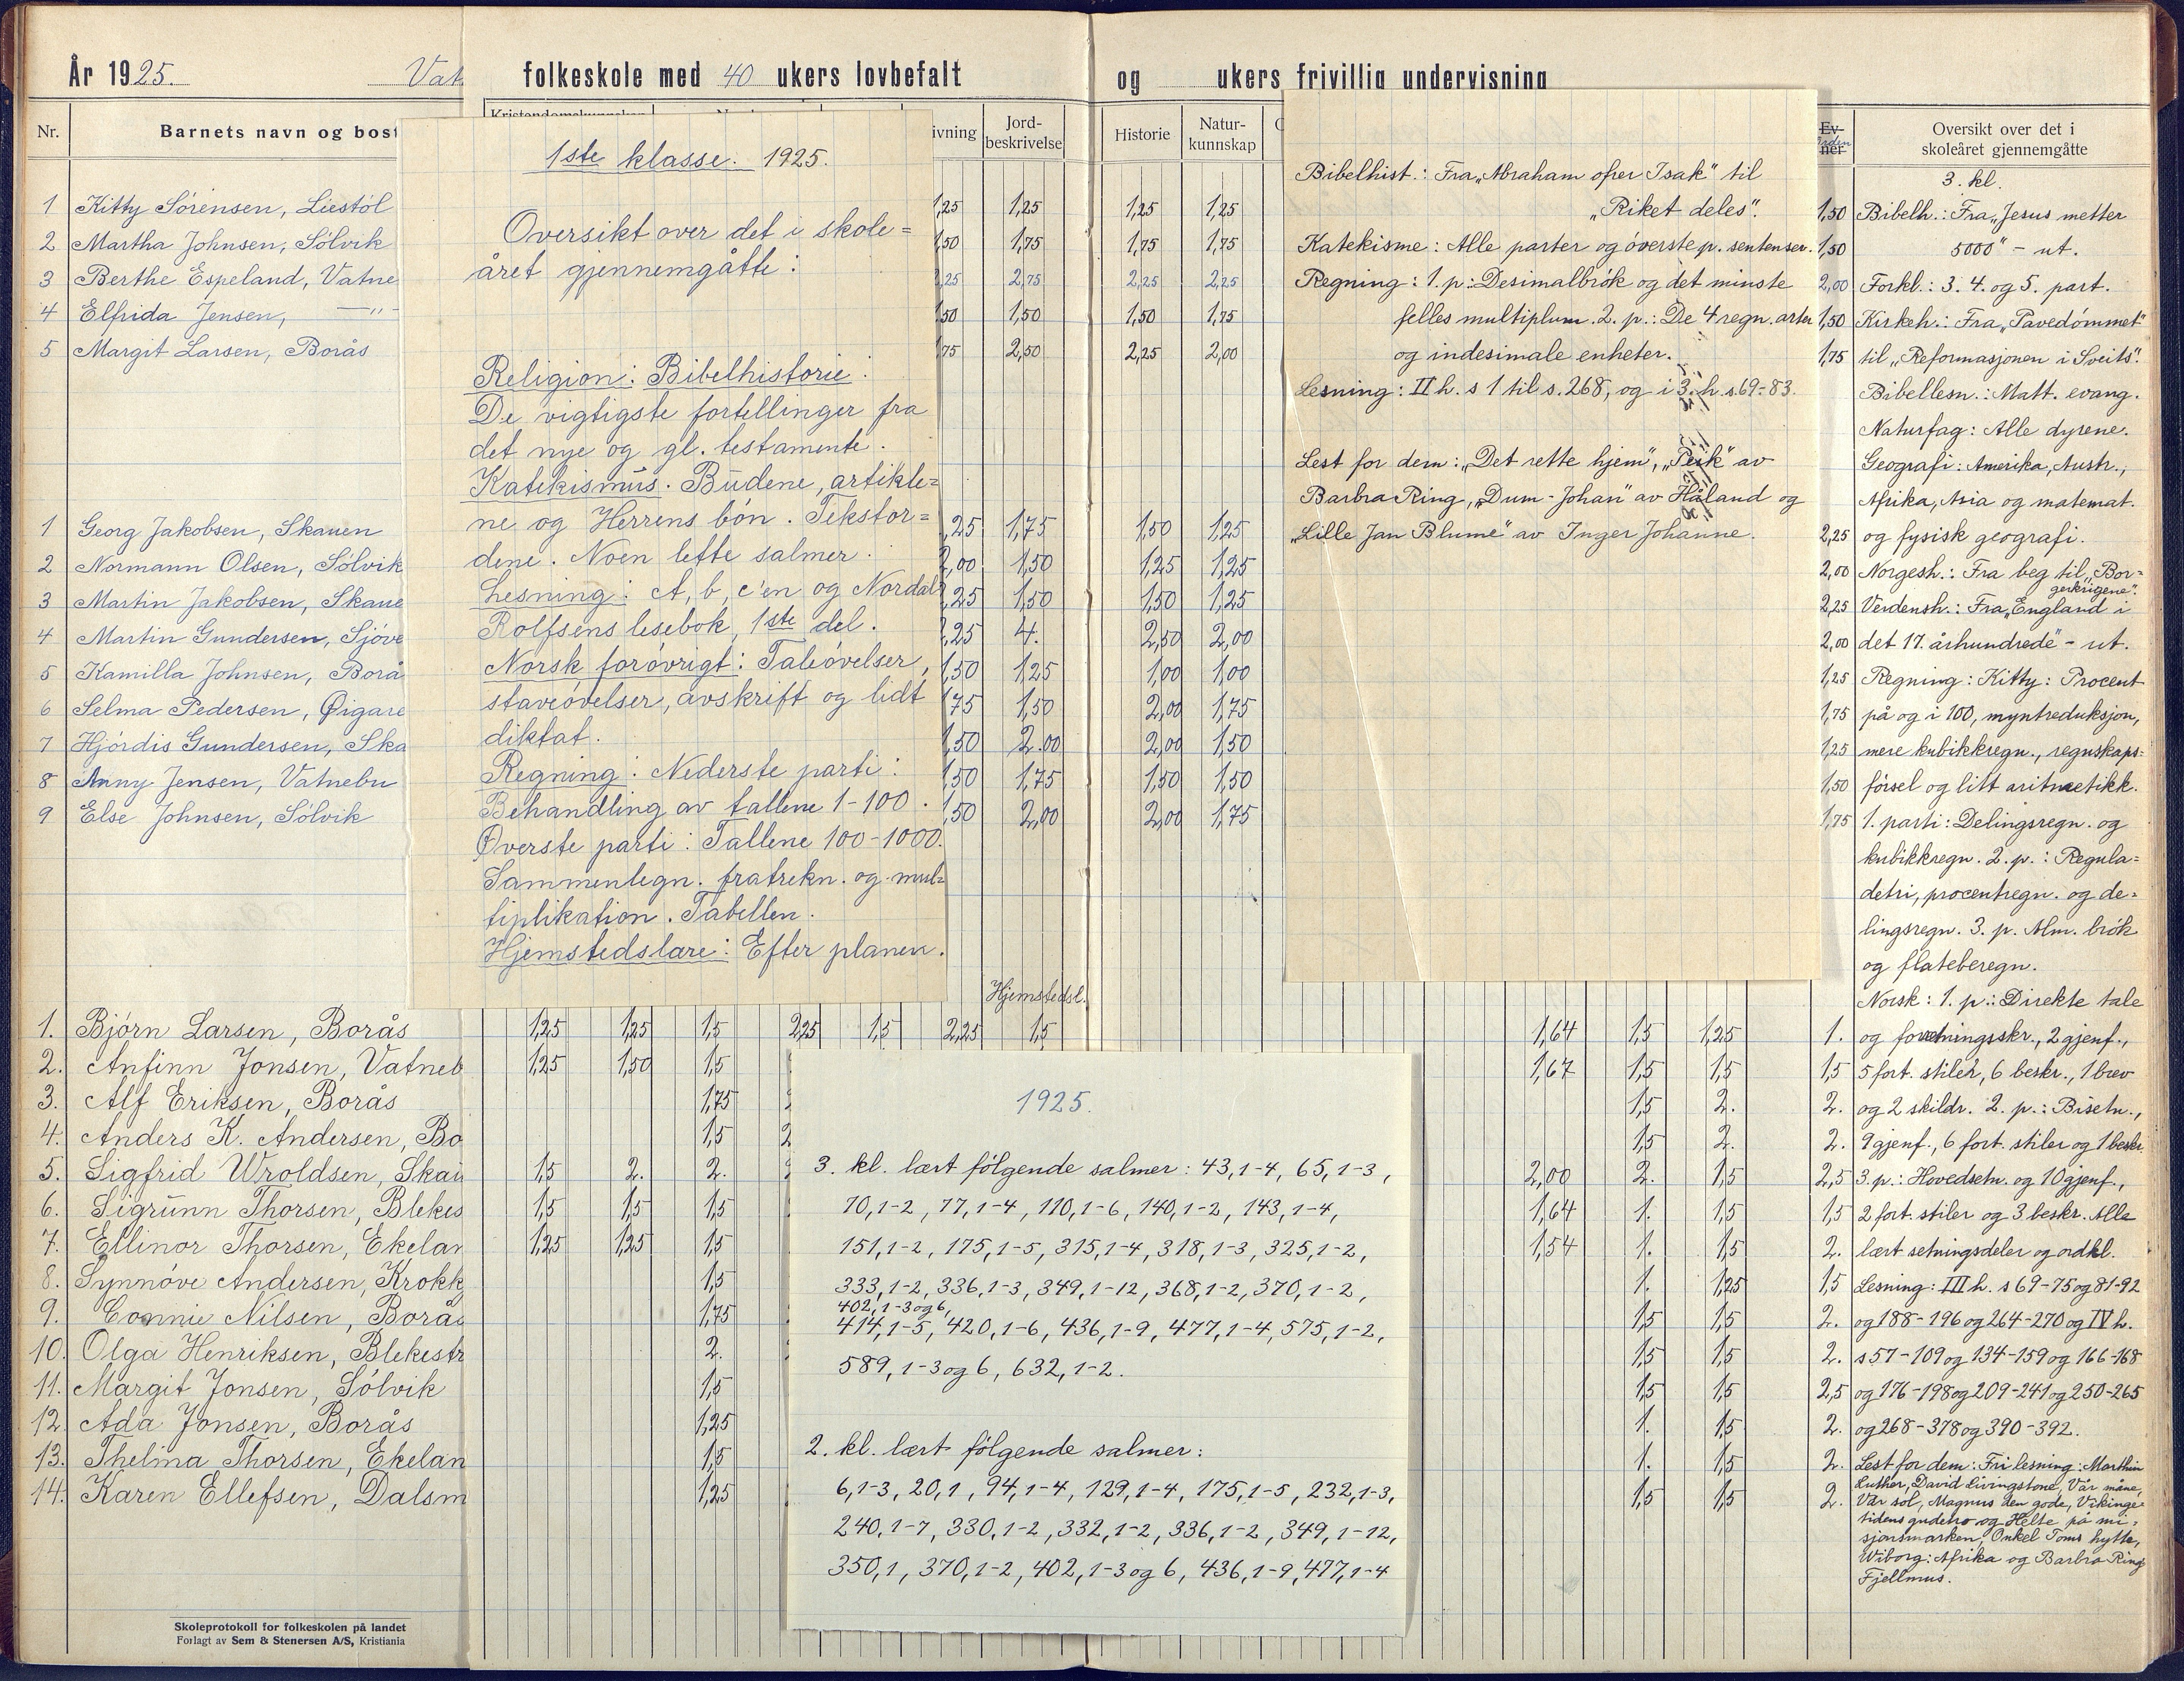 År 1925. Vat folkeskole med 40 ukers lovbefalt og ukers frivillig undervisning
Nr. Barnets navn og bost
1 Kitty Sørensen, Liestøl
2 Martha Johnsen, Sølvik
3 Berthe Espeland, Vatne
4 Elfrida Jensen, —"—
5 Margit Larsen, Borås
1 Georg Jakobsen, Skauen
2 Normann Olsen, Sølvik
3 Martin Jakobsen, Skaue
4 Martin Gundersen, Sjøve
5 Kamilla Johnsen, Borå
6 Selma Pedersen, Øigare
7 Hjórdis Gundersen, Ska
8 Anny Jensen, Vatnebu
9 Else Johnsen, Sølvik
1. Bjórn Larsen, Borås
2. Anfinn Jonsen, Vatneb
3. Alf Eriksen, Borås
4. Anders K. Andersen, Bo
5. Sigfrid Wroldsen, Skau
6. Sigrunn Thorsen, Blekes
7. Ellinor Thorsen, Ekelan
8. Synnóve Andersen, Krokk
9. Connie Nilsen, Borås
10. Olga Henriksen, Blekestr
11. Margit Jonsen, Sólvik
12. Ada Jonsen, Borås
13. Thelma Thorsen, Ekelan
14. Karen Ellefsen, Dalsm
Skoleprotokoll for folkeskolen på landet
Forlagt av Sem & Stenersen A/S, Kristiania
1ste klasse. 1925.
Oversikt over det i skole=
året gjennemgåtte:
Religion: Bibelhistorie:
De vigtigste fortellinger fra
det nye og gl. testamente.
Katekismus. Budene, artikle=
ne og Herrens bón. Tekstor=
dene. Noen lette salmer.
Lesning: A, b, c'en og Nordal
Rolfsens lesebok, 1ste del.
Norsk forøvrigt: Taleóvelser,
staveóvelser, avskrift og lidt
diktat.
Regning: Nederste parti:
Behandling av tallene 1-100.
Øverste parti: Tallene 100-1000.
Sammenlegn. fratrekn. og mul=
tiplikation. Tabellen.
Hjemstedslære: Efter planen.
ivning Jord-beskrivelse Historie Natur-kunnskap
1,25 1,25 1,25 1,25
1,50 1,75 1,75 1,75
2,25 2,75 2,25 2,25
1,50 1,50 1,50 1,75
1,75 2,50 2,25 2,00
,25 1,75 1,50 1,25
2,00 1,50 1,25 1,25
,25 1,50 1,50 1,25
,25 4. 2,50 2,00
1,50 1,25 1,00 1,00
,75 1,50 2,00 1,75
1,50 2.00 2,00 1,50
1,50 1,75 1,50 1,50
1,50 2,00 2,00 1,75
Hjemstedsl.
1,25 1,25 1,5 2,25 1,5 2,25 1,5 1,64 1,5 1,25 1.
1,25 1,50 1,5 1,67 1,5 1,5 1,5
1,75 1,5 2. 2.
1,5 1,5 2. 2.
1,5 2. 2. 2,00 2. 1,5 2,5
1,5 1,5 1,5 1,64 1. 1,5 1,5
1,25 1,25 1,5 1,54 1. 1,5 2.
1,5 1. 1,25 1,5
1,75 1,5 1,5 2.
2. 1,5 1,5 2.
1,5 1,5 1,5 2,5
1,25 1. 1,5 2.
1,5 1. 1,5 2.
1,25 1,5 1,5 2.
1925.
3. kl. lært følgende salmer: 43,1-4, 65,1-3,
70,1-2, 77,1-4, 110,1-6, 140,1-2, 143,1-4,
151,1-2, 175,1-5, 315,1-4, 318,1-3, 325,1-2,
333,1-2, 336,1-3, 349,1-12, 368,1-2, 370,1-2,
402,1-3 og 6,
414,1-5, 420,1-6, 436,1-9, 477,1-4, 575,1-2,
589,1-3 og 6, 632,1-2.
2. kl. lært følgende salmer:
6,1-3, 20,1, 94,1-4, 129,1-4, 175,1-5, 232,1-3,
240,1-7, 330,1-2, 332,1-2, 336,1-2, 349,1-12,
350,1, 370,1-2, 402,1-3 og 6, 436,1-9, 477,1-4
Bibelhist.: Fra „Abraham ofrer Isak" til
„Riket deles".
Katekisme: Alle parter og óverste p. sentenser.
Regning: 1. p.: Desimalbrók og det minste
felles multiplum. 2. p.: De 4 regn. arter
og indesimale enheter.
Lesning: II h. s 1 til s. 268, og i 3. h s. 69-83.
Lest for dem: „Det rette hjem", „Peik" av
Barbra Ring, „Dum-Johan" av Håland og
„Lille Jan Blume" av Inger Johanne.
Ev-ner Orden
1,50
1,50
2,00
1,50
1,75
2,25
2,00
2,25
2,00
1,25
1,75
1,25
1,50
1,75
Oversikt over det i
skoleåret gjennemgåtte
3. kl.
Bibelh.: Fra „Jesus metter
5000" - ut.
Forkl.: 3. 4. og 5. part.
Kirkeh.: Fra „Pavedómmet"
til „Reformasjonen i Sveits".
Bibellesn.: Matt. evang.
Naturfag: Alle dyrene.
Geografi: Amerika, Austr.,
Afrika, Asia og matemat.
og fysisk geografi.
Norgesh.: Fra beg til „Bor=
gerkrigene".
Verdensh.: Fra „England i
det 17. århundrede" - ut.
Regning: Kitty: Procent
på og i 100, myntreduksjon,
mere kubikkregn., regnskaps=
fórsel og litt aritmetikk.
1. parti: Delingsregn. og
kubikkregn. 2. p.: Regula=
detri, procentregn. og de=
lingsregn. 3. p. Alm. brók
og flateberegn.
Norsk: 1. p.: Direkte tale
og forretningsskr., 2 gjenf.,
5 fort. stiler, 6 beskr., 1 brev
og 2 skildr. 2. p.: Bisetn.,
9 gjenf., 6 fort. stiler og 1 beskr.
3. p.: Hovedsetn. og 10 gjenf.,
2 fort. stiler og 3 beskr. Alle
lært setningsdeler og ordkl.
Lesning: III h. s 69-75 og 81-92
og 188-196 og 264-270 og IV h.
s 57-109 og 134-159 og 166-168
og 176-198 og 209-241 og 250-265
og 268-378 og 390-392.
Lest for dem: Fri lesning: Marthin
Luther, David Livingstone, Vår måne,
Vår sol, Magnus den gode, Vikinge=
tidens gudero og Helte på mi=
sjonsmarken, Onkel Toms hytte,
Wiborg: Afrika og Barbra Ring
Fjellmus.